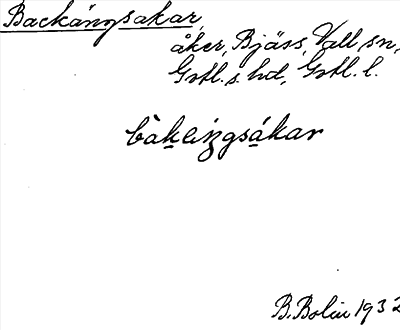 Backängsakar,
åker, Bjärs, Vall sn,
Gotl. s. hd, Gotl. l.
bàkeŋgsákar
B. Bolin 1932